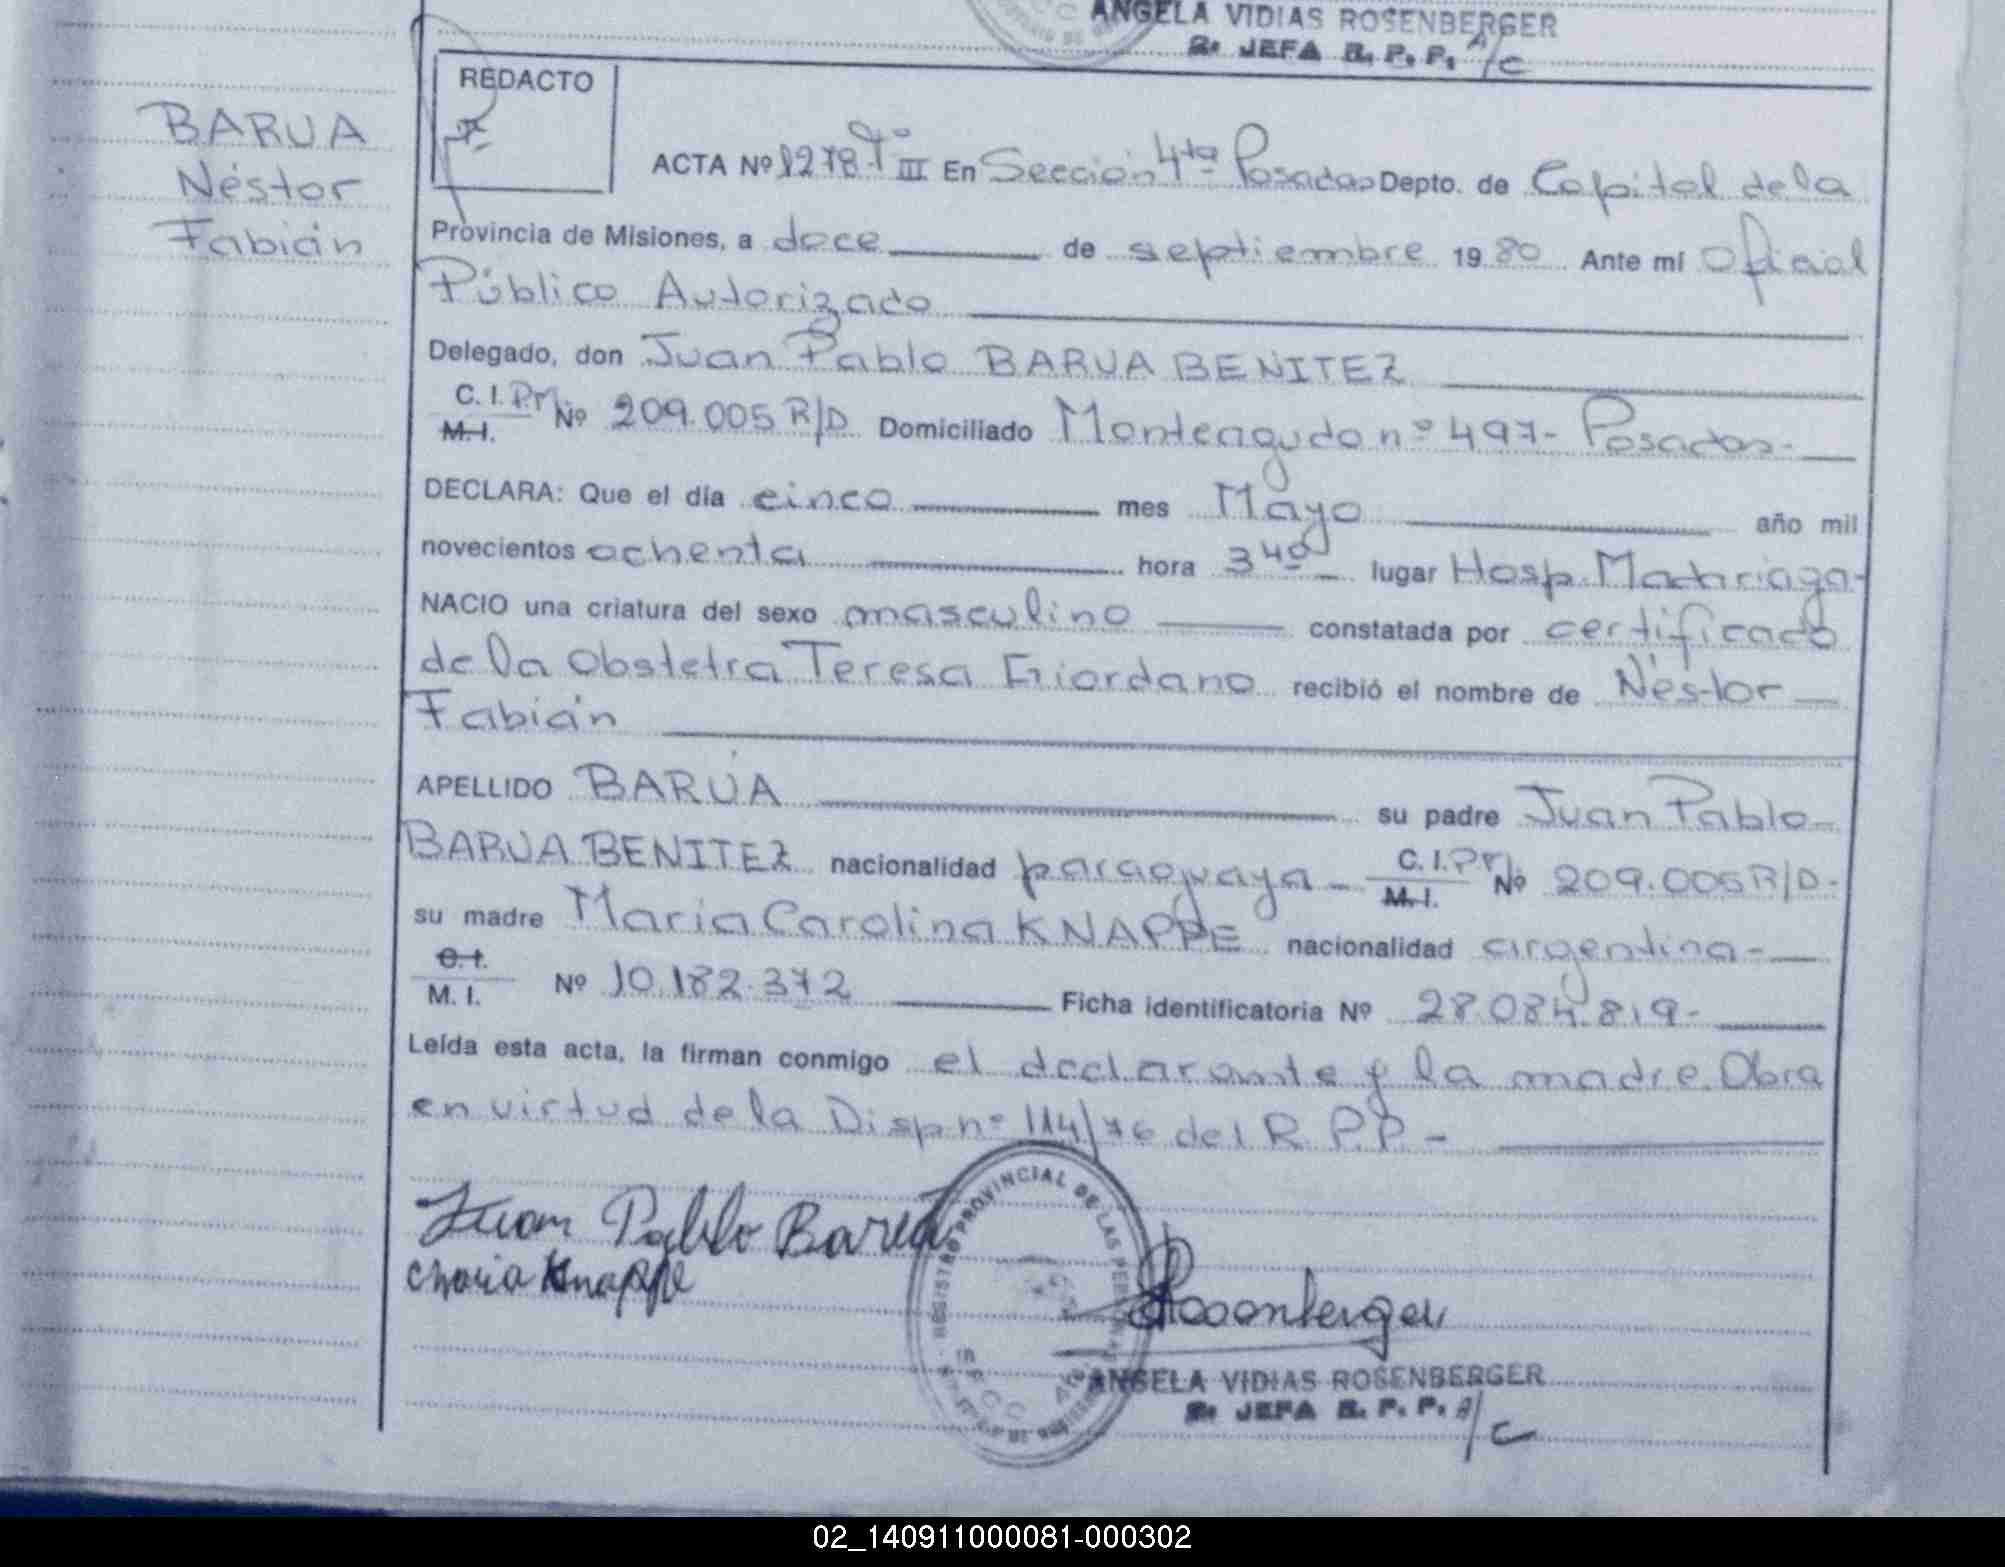 ANGELA VIDIAS ROSENBERGER
2a JEFA R. P. P. A/C
REDACTO
BARUA
Néstor
Fabián
ACTA Nº 1278 Tº III En Sección 4ta Posadas Depto. de Capital de la
Provincia de Misiones, a doce de septiembre 19 80 Ante mí Oficial
Público Autorizado
Delegado, don Juan Pablo BARUA BENITEZ
C. I. Pr
M. I. Nº 209.005 R/D Domiciliado Monteagudo nº 497- Posadas-
DECLARA: Que el día cinco mes Mayo año mil
novecientos ochenta hora 3 40 lugar Hosp. Madariaga-
NACIO una criatura del sexo masculino constatada por certificado
de la Obstetra Teresa Giordano recibió el nombre de Néstor
Fabián
APELLIDO BARÚA su padre Juan Pablo
BARUA BENITEZ nacionalidad paraguaya - C. I. Pr
M. I. Nº 209.005 R/D-
su madre Maria Carolina KNAPPE nacionalidad argentina-
C. I.
M. I. Nº 10.182.372 Ficha identificatoria Nº 28.084.819-
Leída esta acta, la firman conmigo el declarante y la madre. Obra
en virtud de la Disp nº 114/76 del R. P. P. -
Juan Pablo Barua
Maria Knappe
REGISTRO PROVINCIAL DE LAS PERSONAS
Rosenberger
ANGELA VIDIAS ROSENBERGER
2a JEFA R. P. P. A/C
02_140911000081-000302